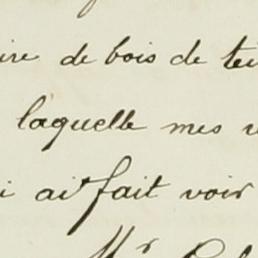 de bois de
laquelle mes
ai fait voir
Mr